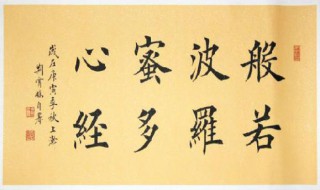 般若
波羅
蜜多
心経
歲在庚寅季秋上浣